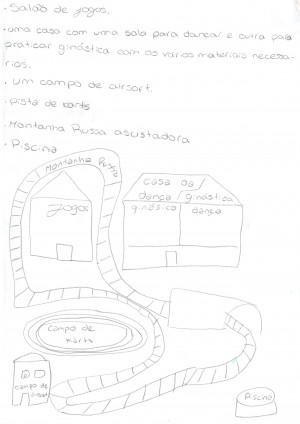 • Salão de jogos.
• uma casa com uma sala para dançar e outra para
praticar ginástica com os vários materiais necessá-
rios.
• um campo de airsoft.
• Pista de karts
• Montanha Russa assustadora
• Piscina
Montanha Russa
Jogos
casa da
dança / ginástica
ginásica dança
campo de
Karts
campo de
Piscina